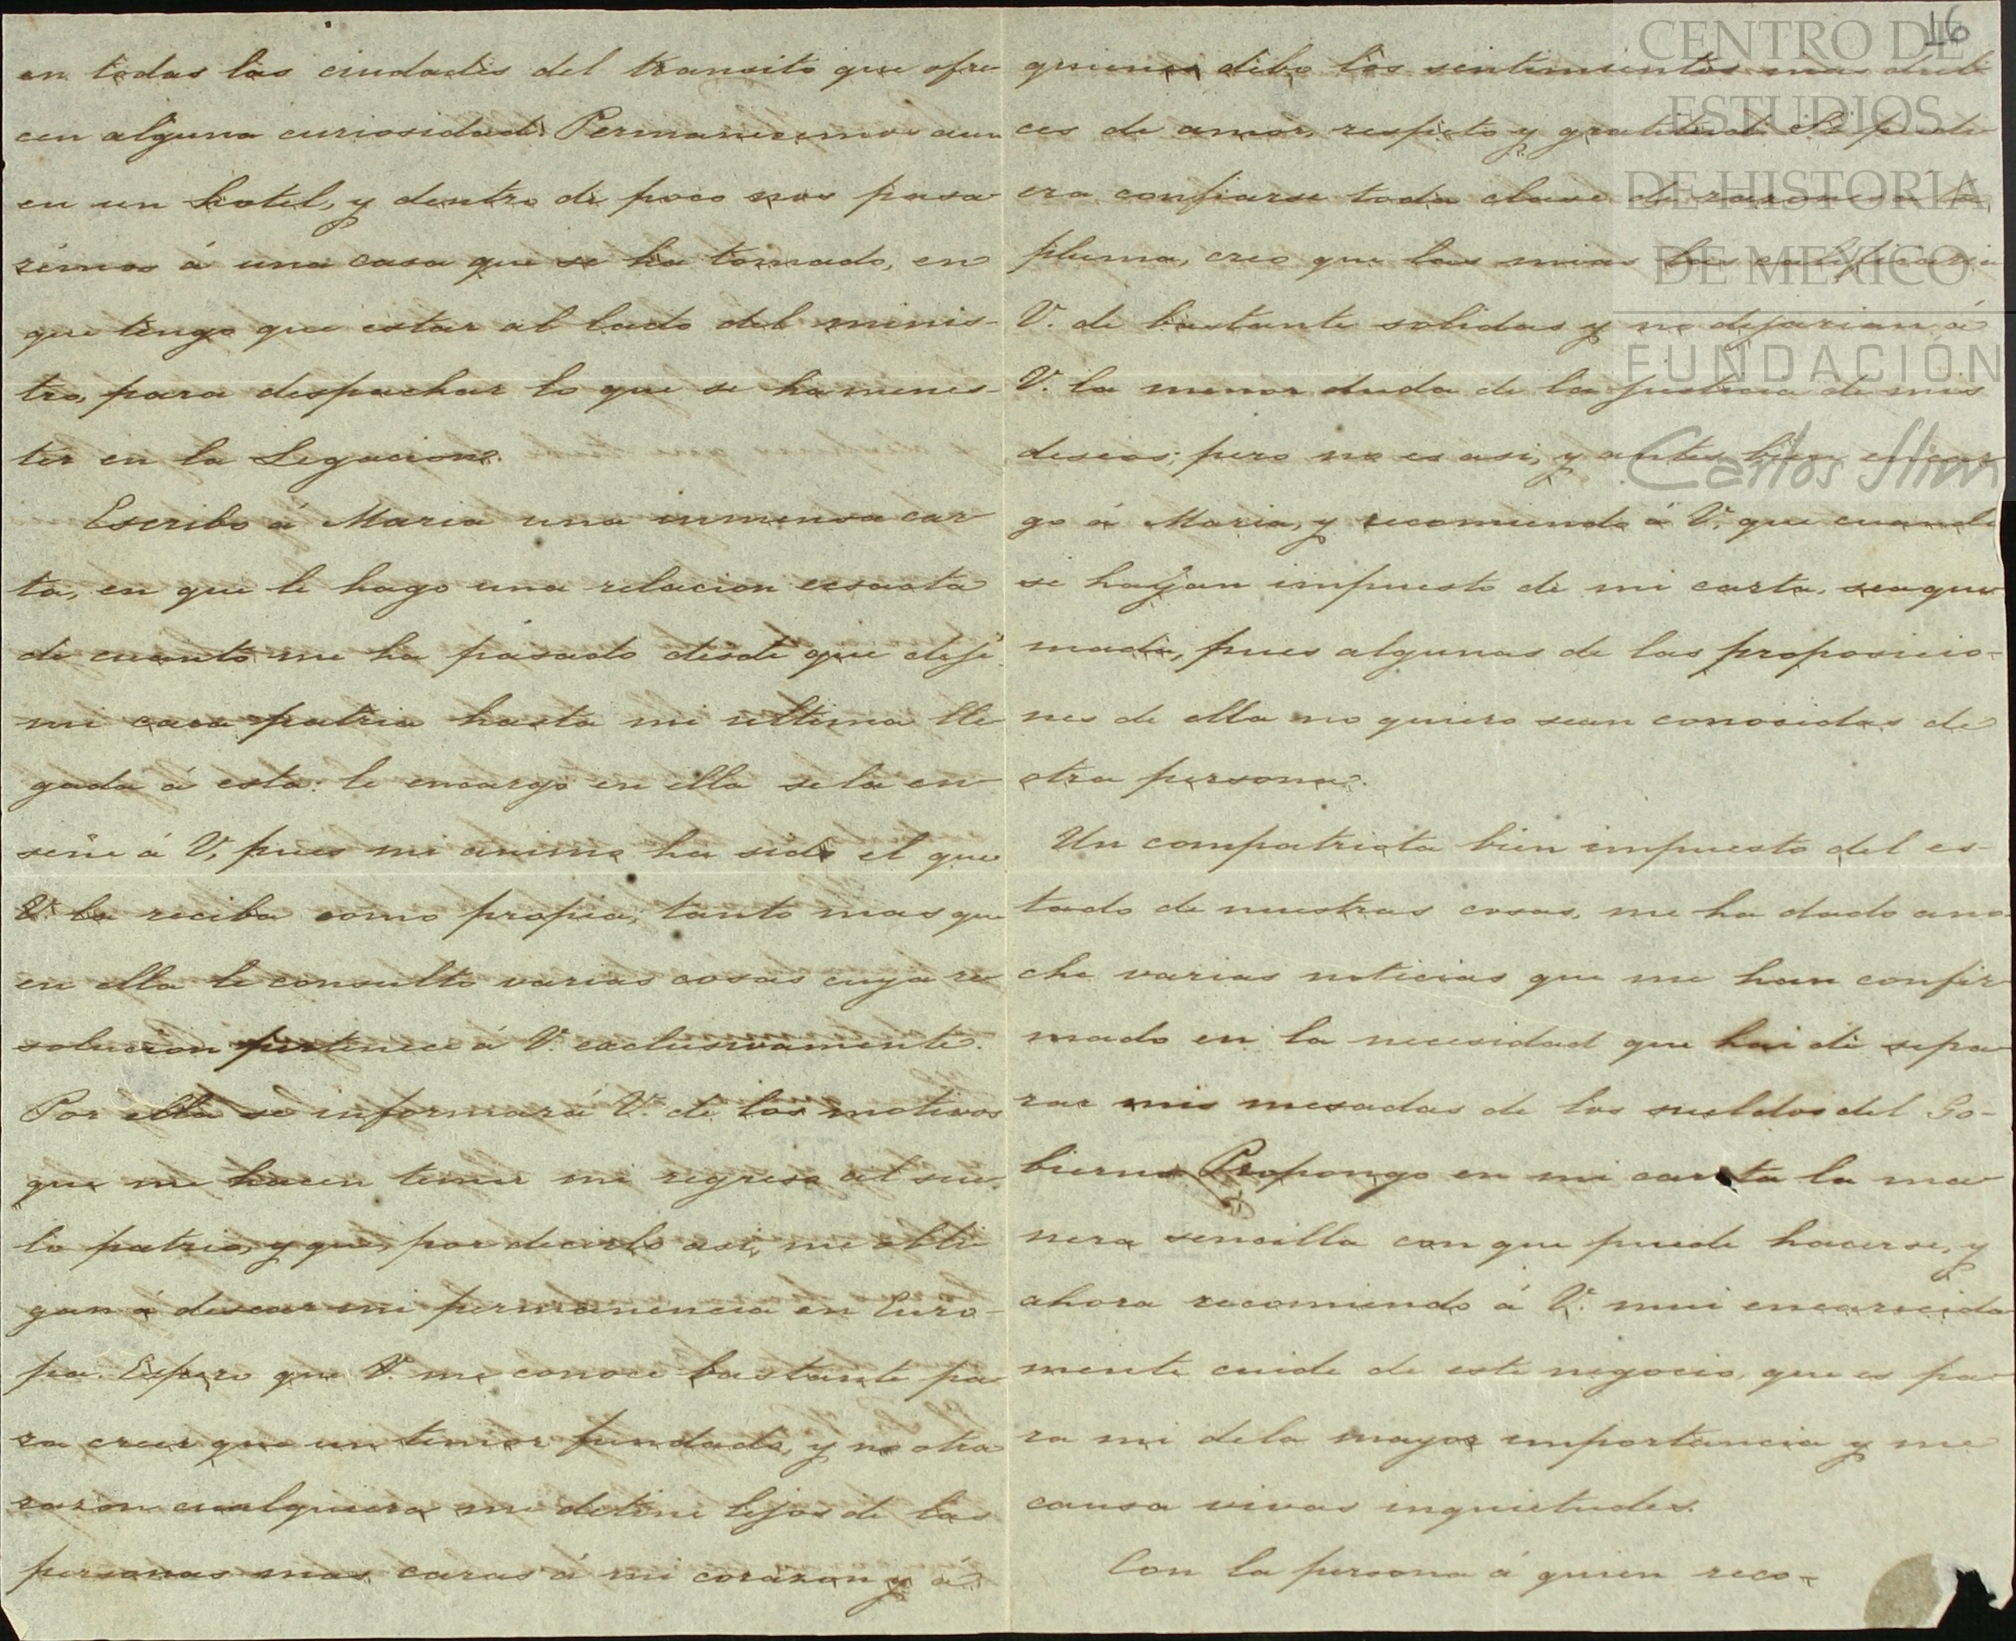 en todas las ciudades del transito que ofre
cen alguna curiosidad. Permanecemos aun
en un hotel, y dentro de poco nos pasa-
rémos á una casa que se ha tomado, en
que tengo que estar al lado del minis-
tro, para despachar lo que se ha menes-
ter en la Legacion.
Escribo á Maria una inmensa car-
ta, en que le hago una relacion ecsacta
de cuanto me ha pasado desde que dejé
mi cara patria hasta mi ultima lle-
gada á esta: le encargo en ella se la en-
señe á V, pues mi animo ha sido el que
V. la reciba como propia; tanto mas que
en ella le consulto varias cosas cuya re-
solucion pertenece á V. exclusivamente.
Por ella se informará V. de los motivos
que me hacen temer mi regreso al sue-
lo patrio, y que, por decirlo asi, me obli
gan á desear mi permanencia en Euro-
pa. Espero que V. me conoce bastante pa-
ra creer que un temor fundado, y no otra
razon cualquiera me detiene lejos de las
personas mas caras á mi corazon y á
16
quienes debo los sentimientos mas dul-
ces de amor, respeto y gratitud. Si pudi-
era confiarse toda clase de razones a la
pluma, creo que las mias las calificaria
V. de bastante solidas y no dejarian á
V. la menor duda de la justicia de mis
deseos; pero no es asi, y antes bien encar-
go á Maria, y recomiendo á V. que cuando
se hayan impuesto de mi carta, sea que-
mada, pues algunas de las proposicio-
nes de ella no quiero sean conosidas de
otra persona.
Un compatriota bien impuesto del es-
tado de nuestras cosas, me ha dado ano-
che varias noticias que me han confir-
mado en la necesidad que hai de sepa-
rar mis mesadas de los sueldos del Go-
bierno. Propongo en mi carta la ma-
nera sencilla con que puede hacerse, y
ahora recomiendo á V. mui encarecida
mente cuide de este negocio, que es pa-
ra mi de la mayor importancia y me
causa vivas inquietudes.
Con la persona á quien reco-
CENTRO DE
ESTUDIOS
DE HISTORIA
DE MEXICO
FUNDACIÓN
Carlos Slim